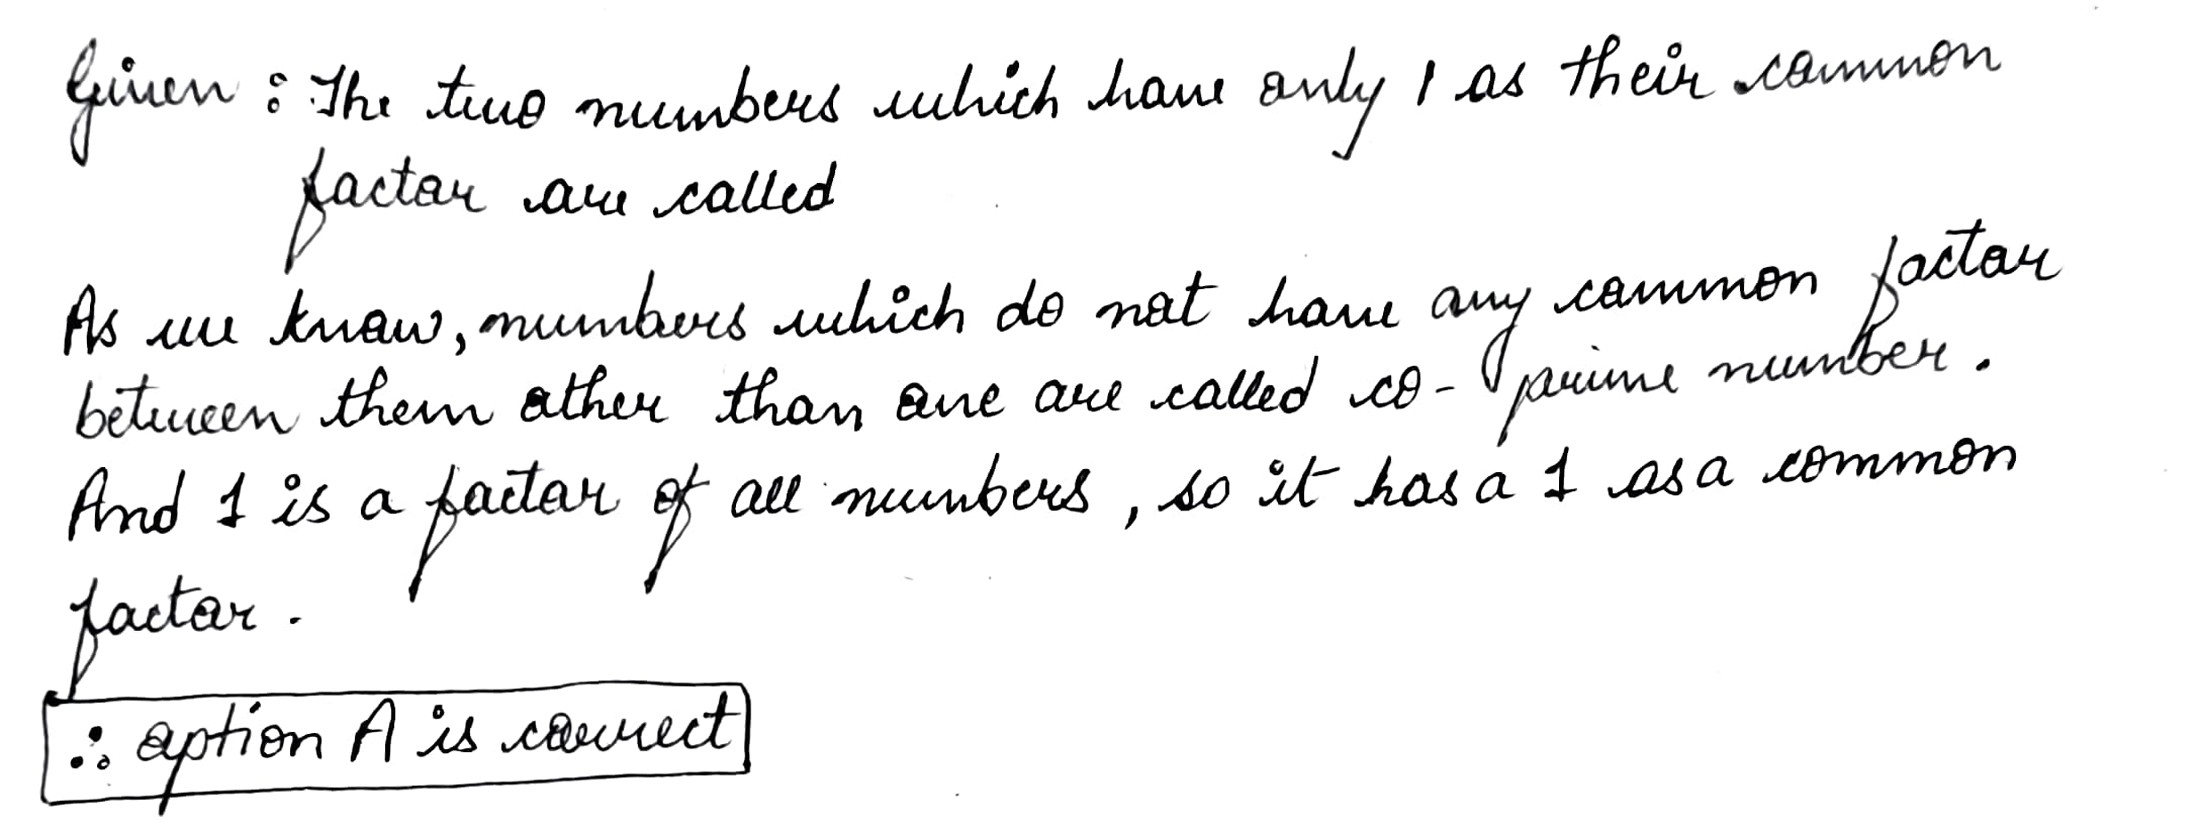 Given : The two numbers which have only 1 as their common
factor are called
As we know, numbers which do not have any common factor
between them other than one are called co-prime number.
And 1 is a factor of all numbers, so it has a 1 as a common
factor.
∴ option A is correct